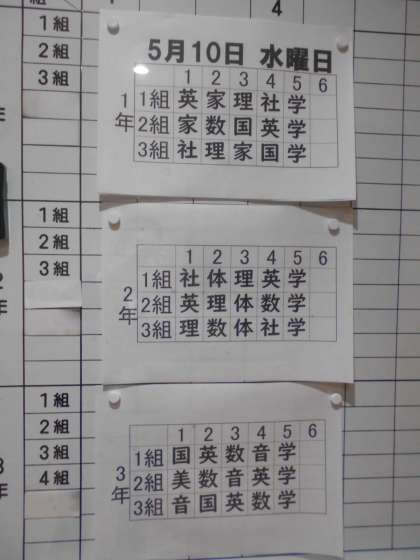 4
1組
2組
3組
5月10日 水曜日
1 2 3 4 5 6
1年
1組 英 家 理 社 学
2組 家 数 国 英 学
3組 社 理 家 国 学
1組
2組
3組
年
1 2 3 4 5 6
2年
1組 社 体 理 英 学
2組 英 理 体 数 学
3組 理 数 体 社 学
1組
2組
3組
4組
年
1 2 3 4 5 6
3年
1組 国 英 数 音 学
2組 美 数 音 英 学
3組 音 国 英 数 学